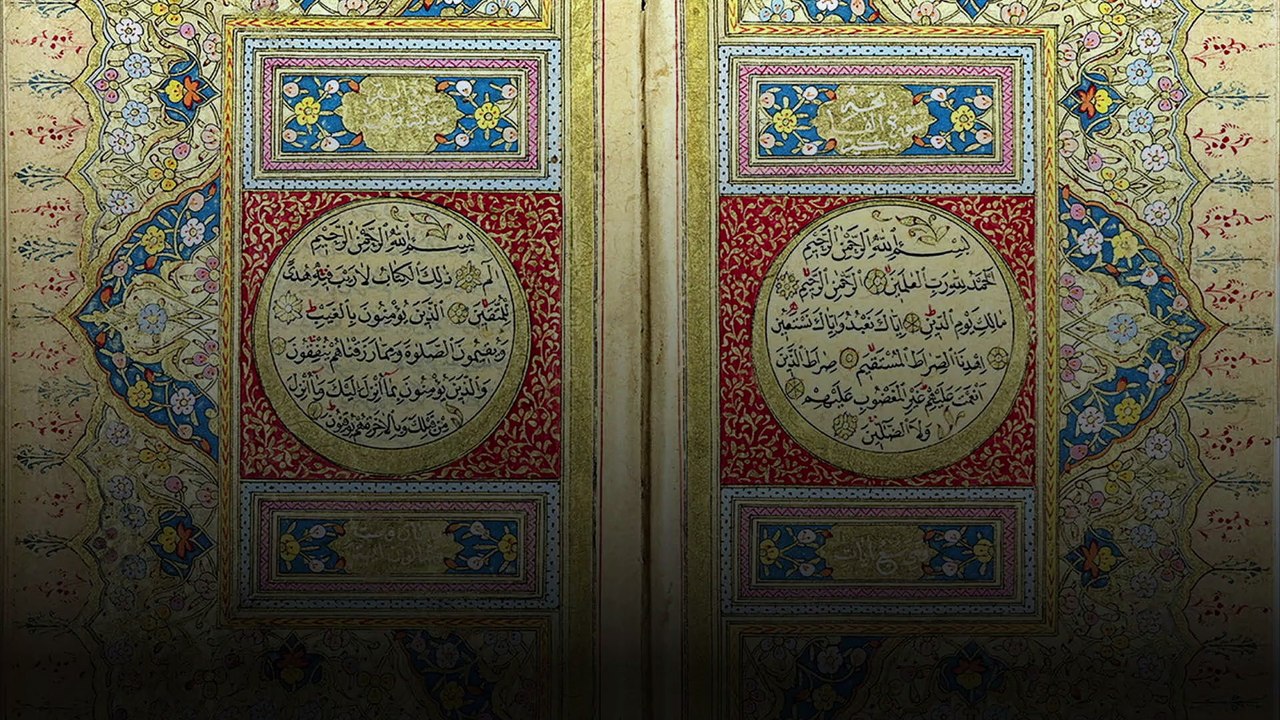 سورة الفاتحة
مكية
بِسْمِ اللّٰهِ الرَّحْمٰنِ الرَّحِيمِ
اَلْحَمْدُ لِلّٰهِ رَبِّ الْعٰلَمِينَ اَلرَّحْمٰنِ الرَّحِيمِ
مَالِكِ يَوْمِ الدِّينِ اِيَّاكَ نَعْبُدُ وَاِيَّاكَ نَسْتَعِينُ
اِهْدِنَا الصِّرَاطَ الْمُسْتَقِيمَ صِرَاطَ الَّذِينَ
اَنْعَمْتَ عَلَيْهِمْ غَيْرِ الْمَغْضُوبِ عَلَيْهِمْ
وَلَا الضَّالِّينَ
سبع ايات
سورة البقرة
بِسْمِ اللّٰهِ الرَّحْمٰنِ الرَّحِيمِ
الم ذٰلِكَ الْكِتَابُ لَا رَيْبَ فِيهِ هُدًى
لِلْمُتَّقِينَ اَلَّذِينَ يُؤْمِنُونَ بِالْغَيْبِ
وَيُقِيمُونَ الصَّلٰوةَ وَمِمَّا رَزَقْنَاهُمْ يُنْفِقُونَ
وَالَّذِينَ يُؤْمِنُونَ بِمَا اُنْزِلَ اِلَيْكَ وَمَا اُنْزِلَ
مِنْ قَبْلِكَ وَبِالْاٰخِرَةِ هُمْ يُوقِنُونَ